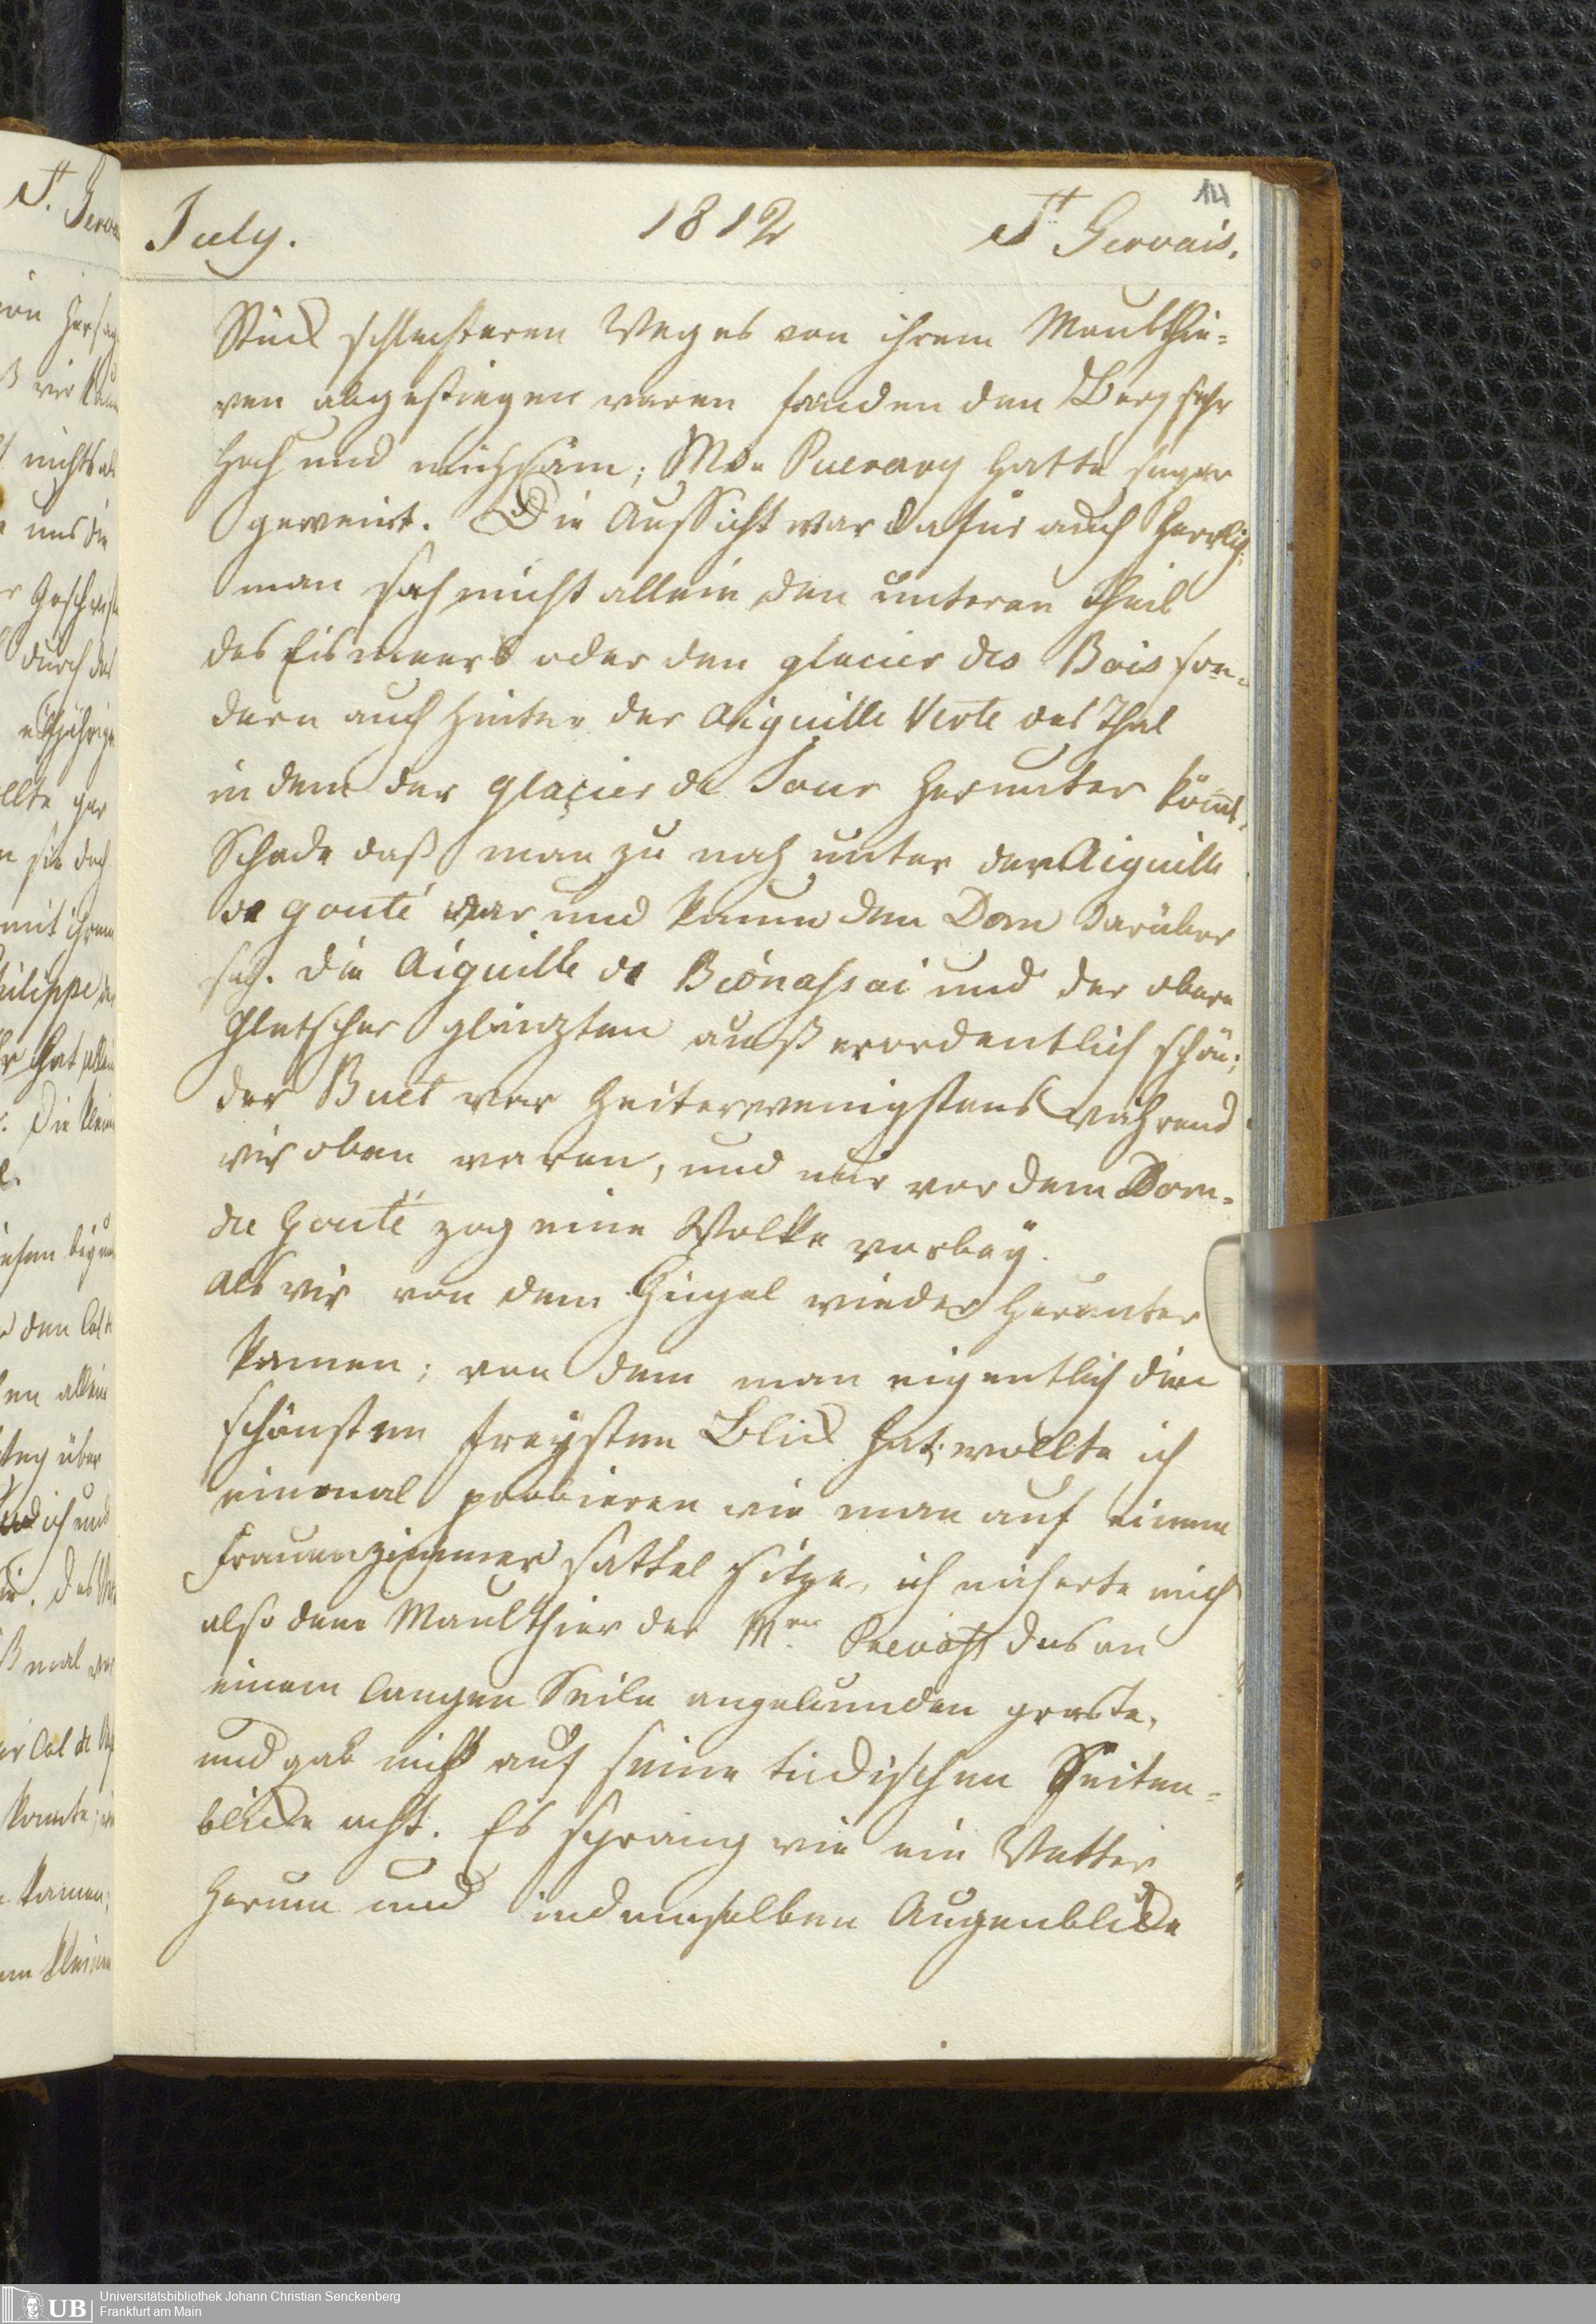 14
July. 1812 St Gervais.
Stück schlechteren Weges von ihrem Maulthie-
ren abgestiegen waren fanden den Berg sehr
hoch und mühsam; Mde Puerary hatte sogar
geweint. Die Aussicht war dafür auch herrlich:
man sah nicht allein den unteren Theil
des Eismeers oder den glacier des Bois son-
dern auch hinter der Aiguille Verte das Thal
in dem der glaçier de Tour herunter kömt,
Schade daß man zu nah unter der Aiguille
de gouté war und kaum den Dom darüber
sah. Die Aiguille de Bionassai und der obere
Gletscher glänzten außerordentlich schön;
der Buet war heiter wenigstens während
wir oben waren, und nur vor dem Dom-
de Gouté zog eine Wolke vorbeÿ.
Als wir von dem Hügel wieder herunter
kamen; von dem man eigentlich die
schönsten freÿsten Blick hat, wollte ich
einmal probieren wie man auf einem
Frauenzimmer sattel sitze, ich näherte mich
also dem Maulthier der Mme Prevost das an
einem langen Seile angebunden graste,
und gab nicht auf seine tückischen Seiten-
blicke acht. Es sprang wie ein Wetter
herum und in demselben Augenblicke
Universitätsbibliothek Johann Christian Senckenberg
Frankfurt am Main
UB